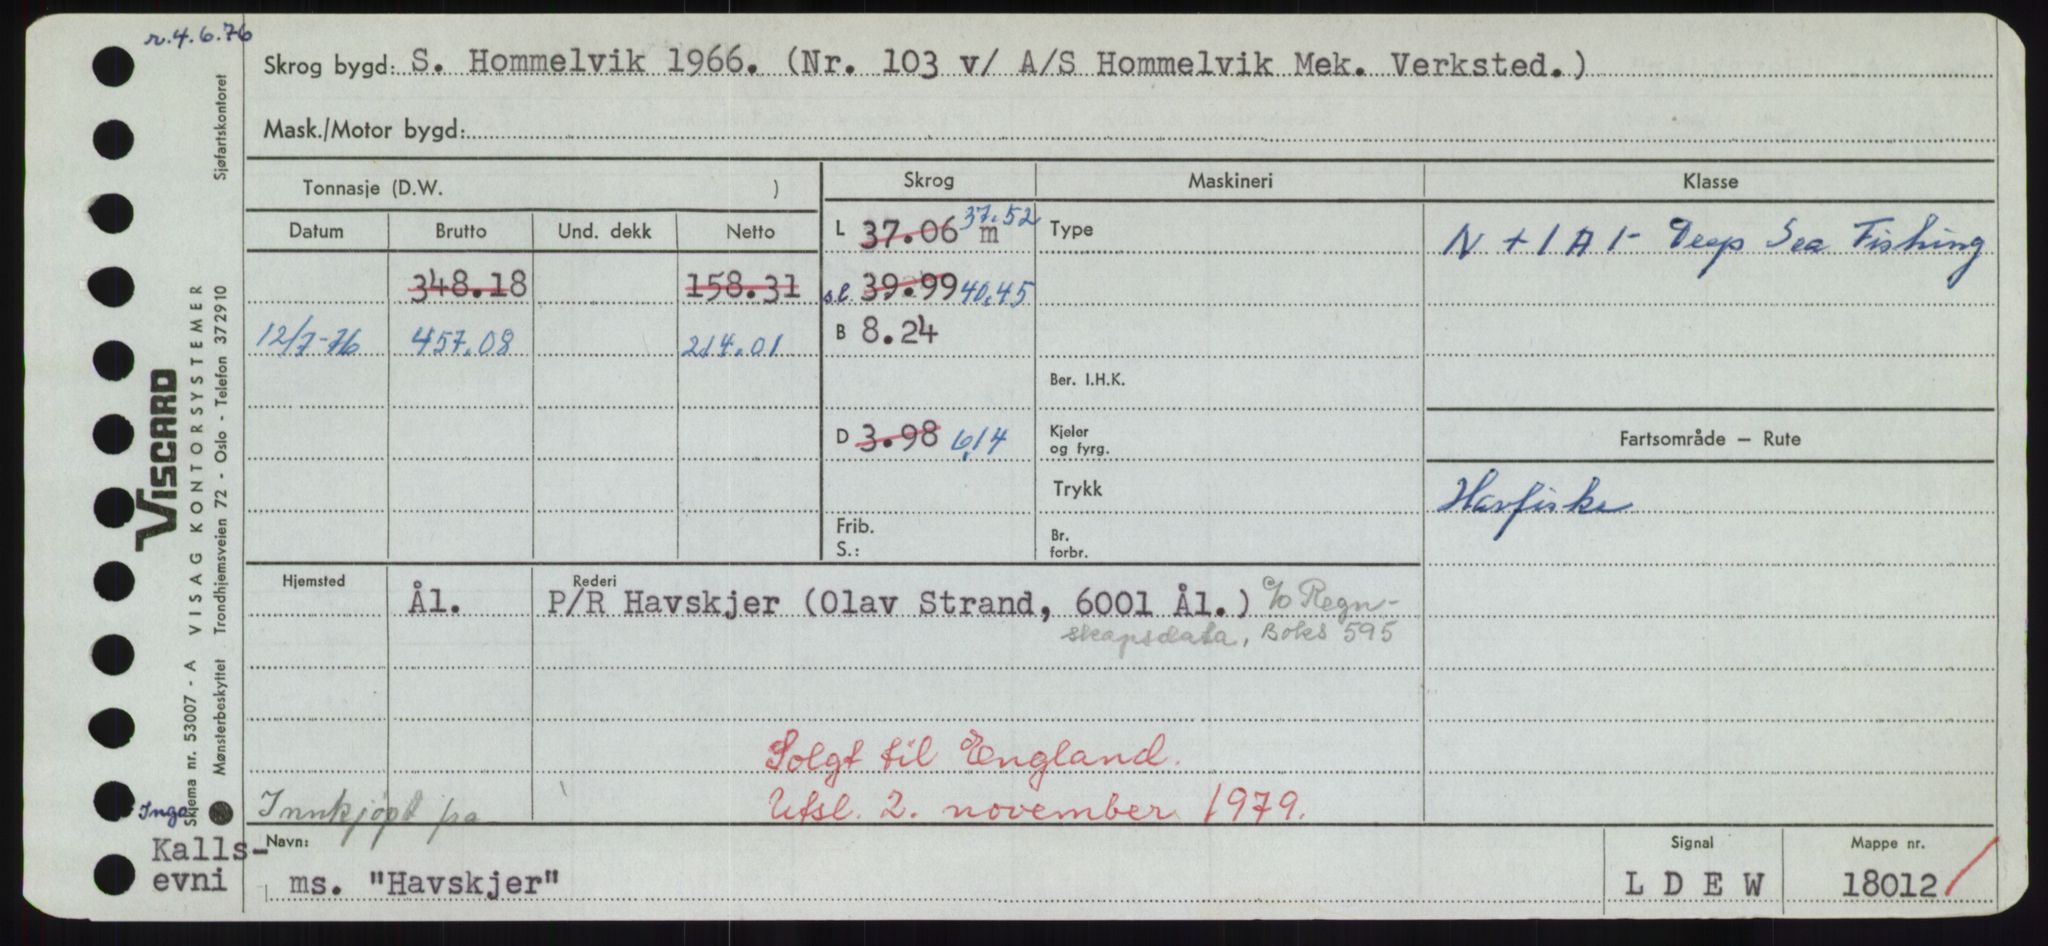 r.4.6.76
Skrog bygd: S. Hommelvik 1966. (Nr. 103 v/ A/S Hommelvik Mek. Verksted.)
Mask./Motor bygd:
Tonnasje (D.W. )
Skrog Maskineri Klasse
Datum Brutto Und. dekk Netto
L 37.06 m 37.52 Type N + 1 A 1 - Deep Sea Fishing
348.18 158.31 sl 39.99 40.45
12/7-76 457.08 214.01 B 8.24
Ber. I.H.K.
D 3.98 6,14 Kjeler og fyrg. Fartsområde – Rute
Trykk Havfiske
Frib. S.: Br. forbr.
Hjemsted Rederi
Ål. P/R Havskjer (Olav Strand, 6001 Ål.) c/o Regn-
skapsdata, Boks 595
Solgt til England.
Innkjøpt fra Utsl. 2. november 1979.
Navn: Signal Mappe nr.
ms. "Havskjer" L D E W 18012
Inga
Kalls-
evni
VISCARD
Skjema nr. 53007 - A VISAG KONTORSYSTEMER
Mønsterbeskyttet Trondhjemsveien 72 - Oslo - Telefon 372910 Sjøfartskontoret